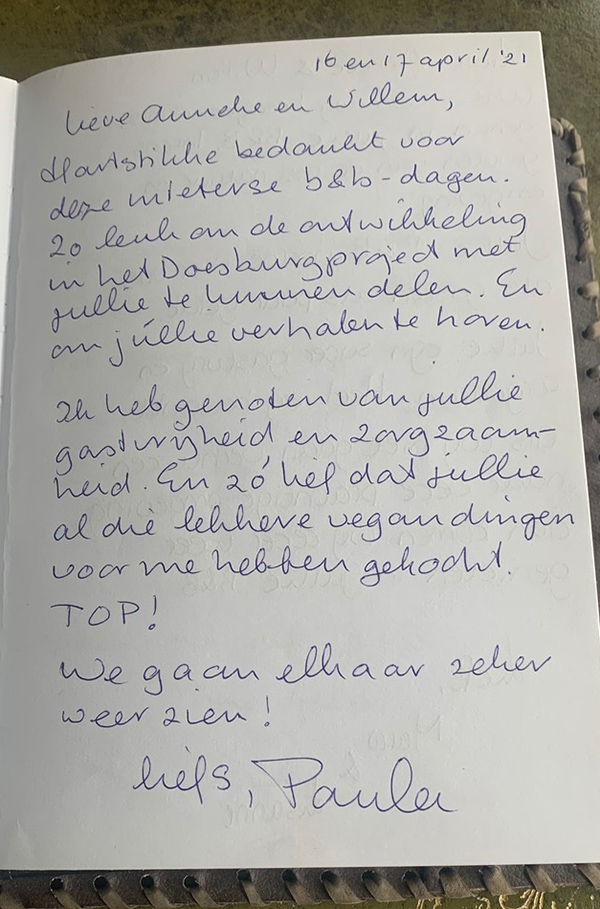 16 en 17 april '21
Lieve Anneke en Willem,
Hartstikke bedankt voor
deze mieterse b&b-dagen.
Zo leuk om de ontwikkeling
in het Doesburgproject met
jullie te kunnen delen. En
om júllie verhalen te horen.
Ik heb genoten van jullie
gastvrijheid en zorgzaam-
heid. En zó lief dat jullie
al die lekkere vegandingen
voor me hebben gekocht.
TOP!
We gaan elkaar zeker
weer zien!
liefs, Paula